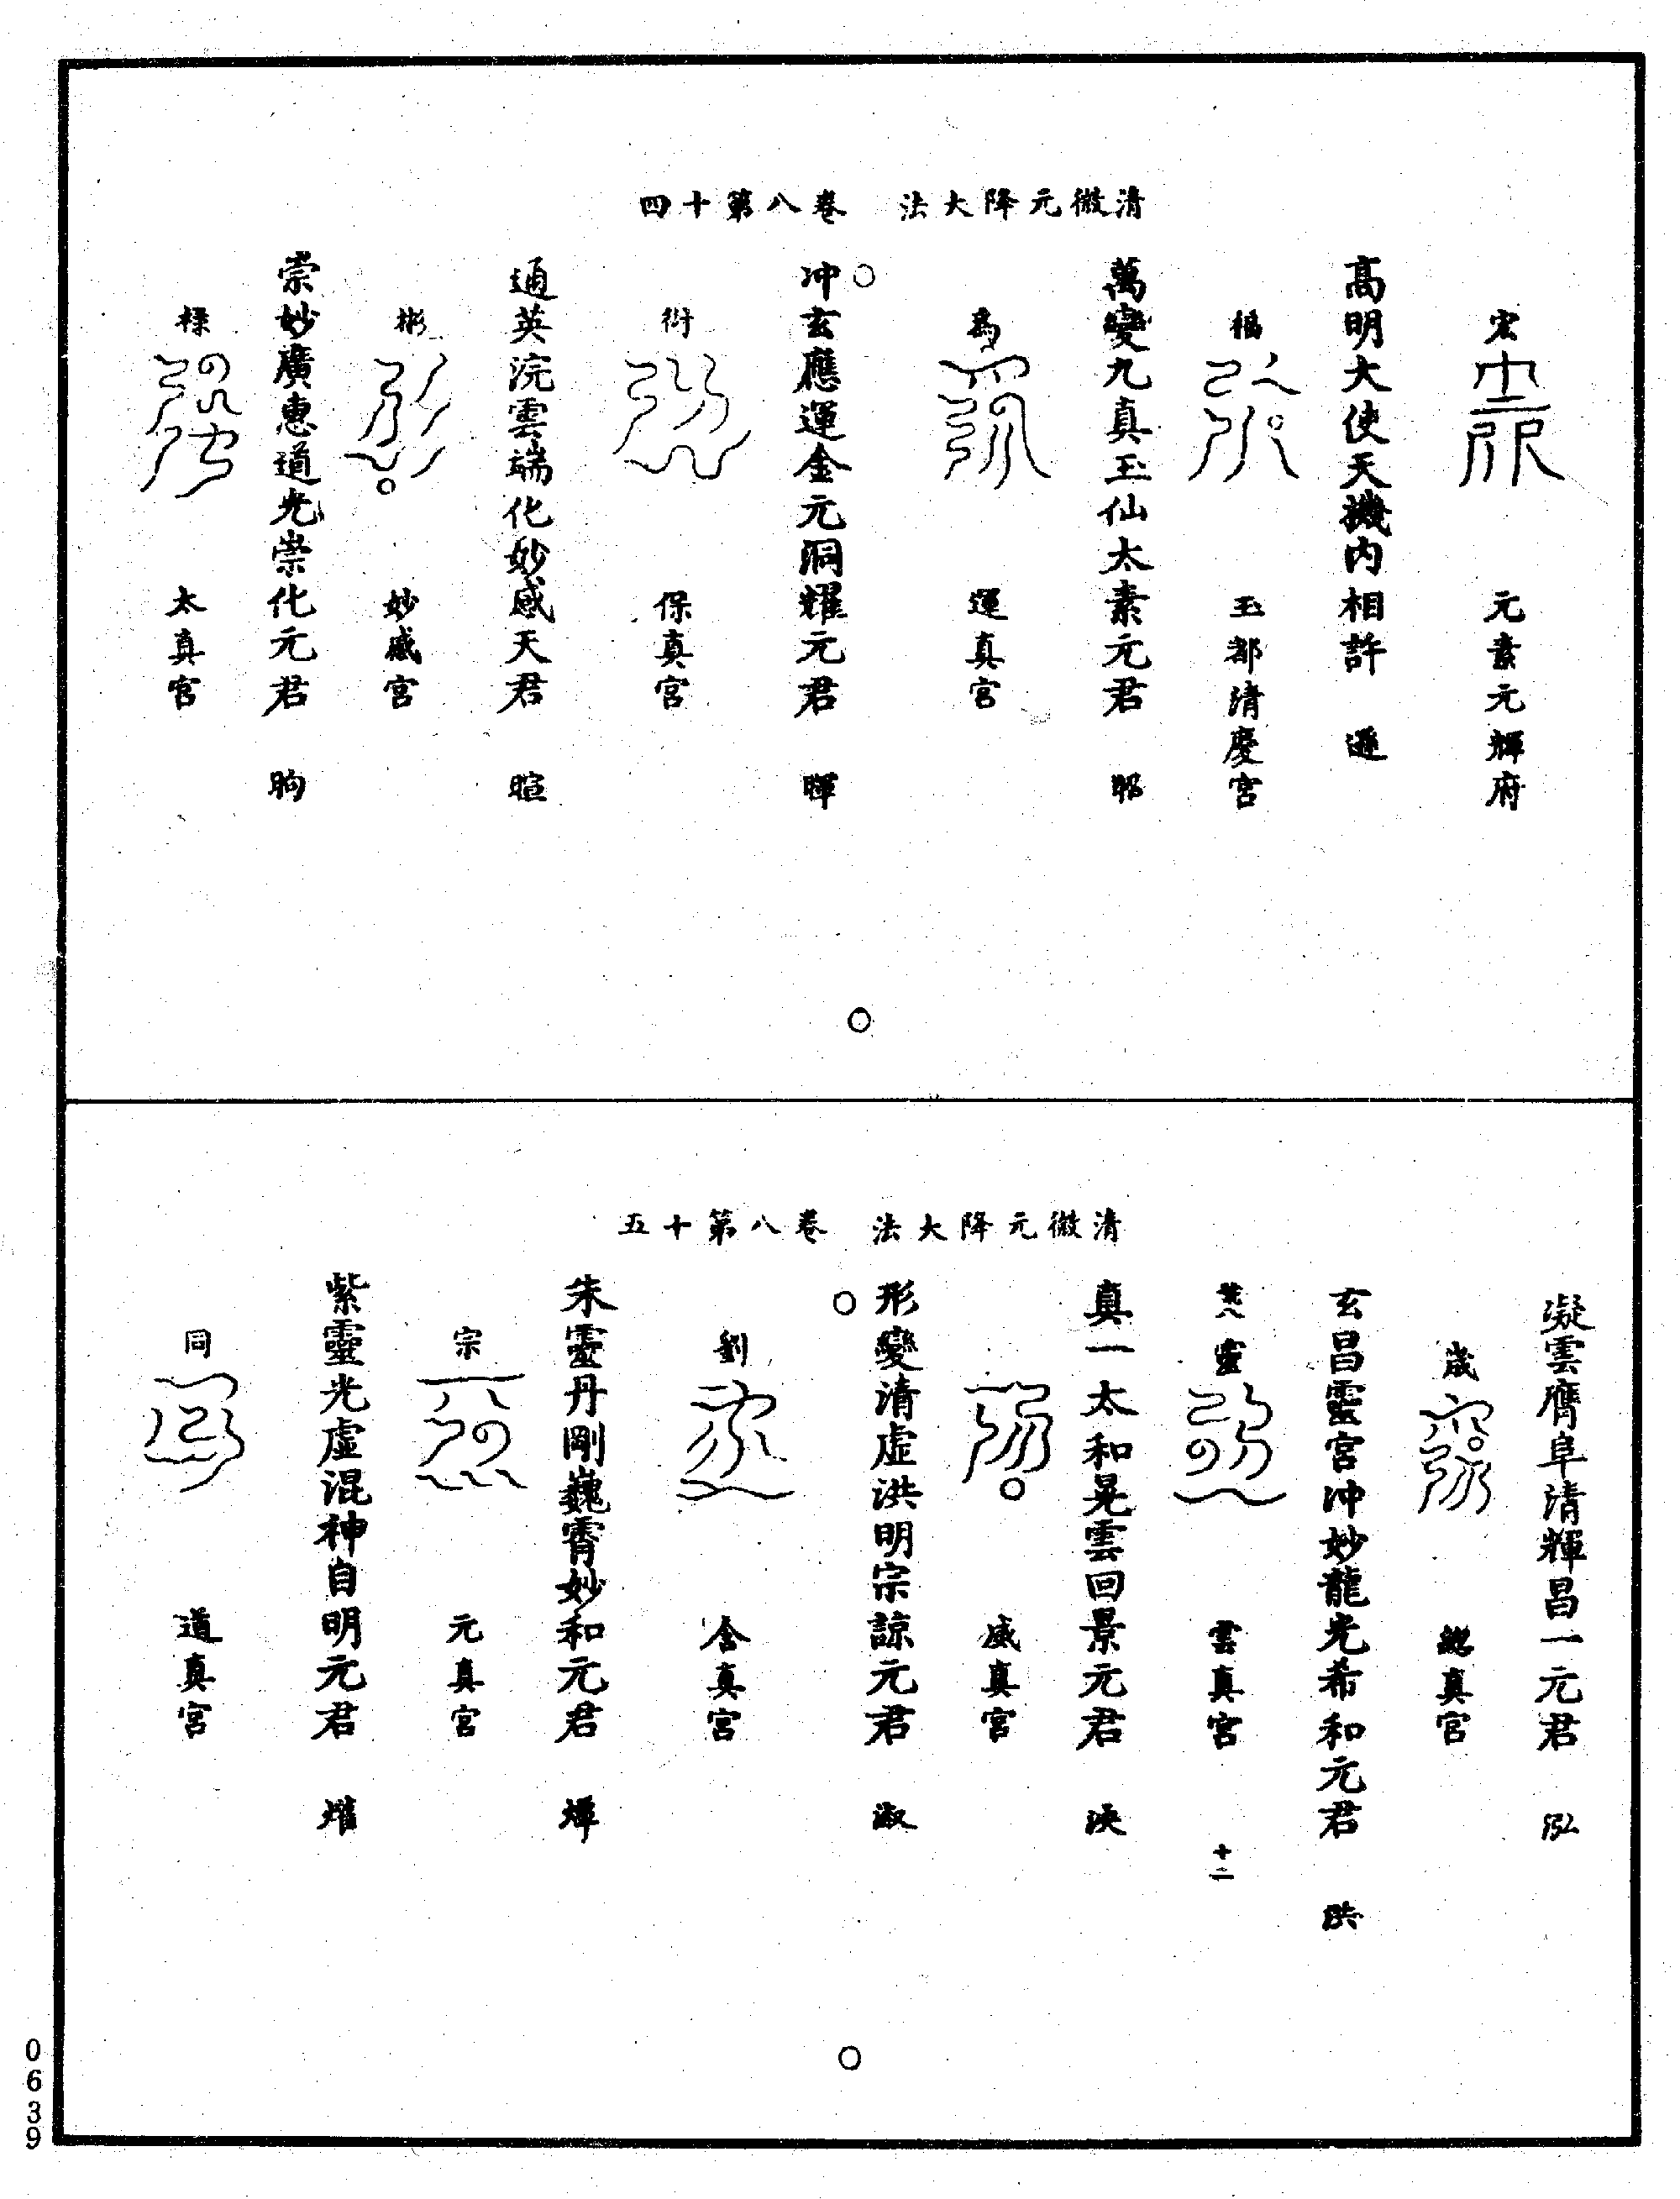 清微元降大法　卷八第十四
宏　元素元輝府
高明大使天機內相許　遜
福　玉都清慶宮
萬變九真玉仙太素元君
為　運真宮
冲玄應運金元洞耀元君　暉
衍　保真宮
通英浣雲端化妙感天君　暄
彬　妙感宮
崇妙廣惠道光崇化元君　昫
祿　太真宮
清微元降大法　卷八第十五
凝雲膺阜清輝昌一元君　泓
歲　總真宮
玄昌靈宮冲妙龍光希和元君　洪
葉八　靈　雲真宮　十二
真一太和晃雲回景元君　泱
威真宮
形變清虛洪明宗諒元君　淑
劉　含真宮
朱靈丹剛巍霄妙和元君　燁
宗　元真宮
紫靈光虛混神自明元君
同　道真宮
0639